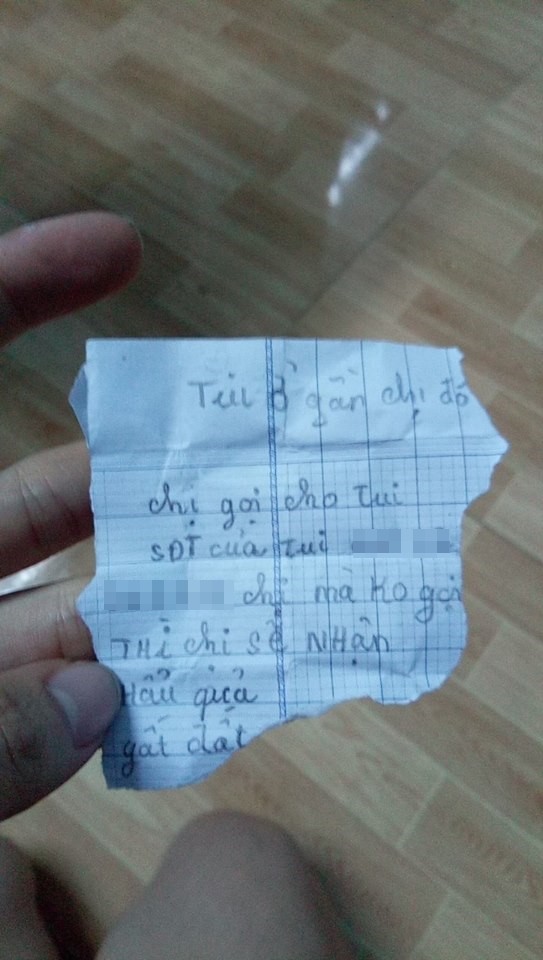 Tui ở gần chị đó
chị gọi cho tui
SĐT của tui
chị mà ko gọi
THÌ chị SẼ NHận
Hẩu qủa
gất dất